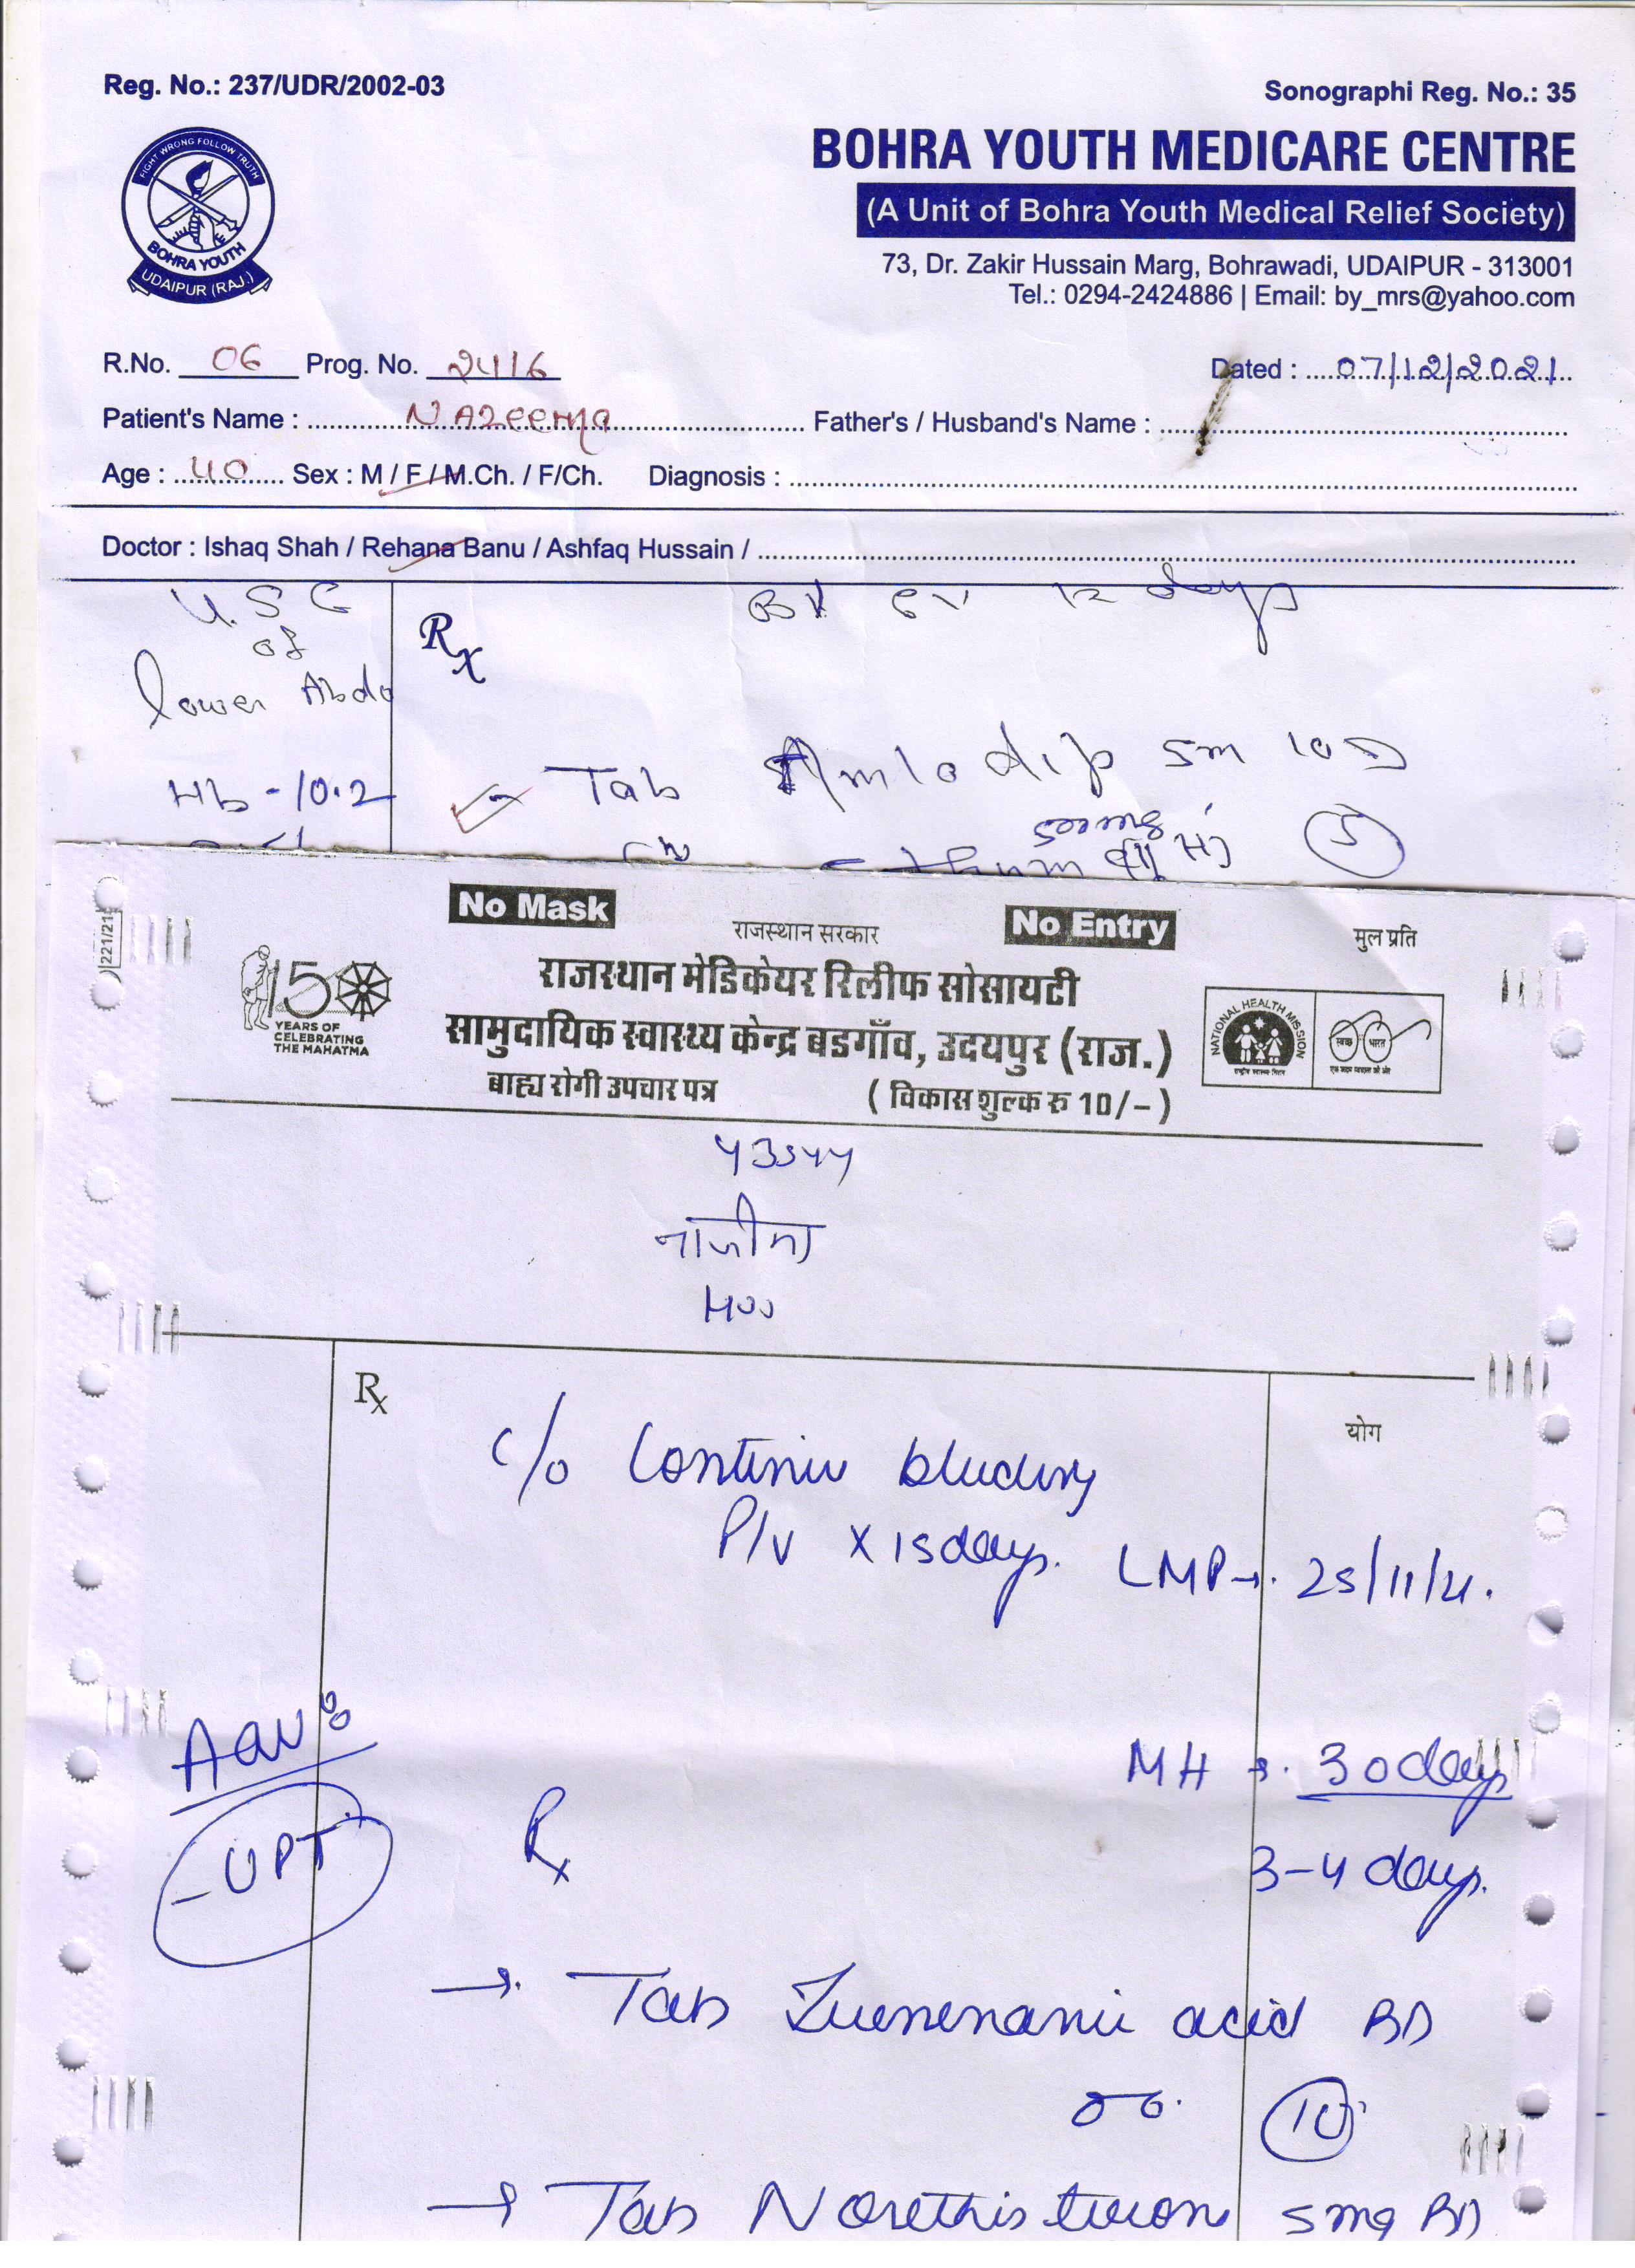 Reg. No.: 237/UDR/2002-03
Sonographi Reg. No.: 35
FIGHT WRONG FOLLOW TRUTH
BOHRA YOUTH
UDAIPUR (RAJ.)
BOHRA YOUTH MEDICARE CENTRE
(A Unit of Bohra Youth Medical Relief Society)
73, Dr. Zakir Hussain Marg, Bohrawadi, UDAIPUR - 313001
Tel.: 0294-2424886 | Email: by_mrs@yahoo.com
R.No. 06 Prog. No. 2416 Dated : 07/12/2021
Patient's Name : Nazeema Father's / Husband's Name :
Age : 40 Sex : M / F / M.Ch. / F/Ch. Diagnosis :
Doctor : Ishaq Shah / Rehana Banu / Ashfaq Hussain /
U.S.G
of
lower Abdo
Hb - 10.2
Rx
12 days
Tab Amlodip 5m 10D
500mg
5
221/21
No Mask
राजस्थान सरकार
No Entry
मुल प्रति
150
YEARS OF
CELEBRATING
THE MAHATMA
राजस्थान मेडिकेयर रिलीफ सोसायटी
सामुदायिक स्वास्थ्य केन्द्र बडगाँव, उदयपुर (राज.)
बाह्य रोगी उपचार पत्र ( विकास शुल्क रु 10/- )
NATIONAL HEALTH MISSION
राष्ट्रीय स्वास्थ्य मिशन
स्वच्छ भारत
एक कदम स्वच्छता की ओर
Rx
योग
c/o Continue bleeding
P/v x 15 days. LMP → 25/11/21.
Adv:
- UPT
MH → 30 days
3-4 days.
Rx
→ Tab Tranexamic acid BD
10
→ Tab Norethisteron 5mg BD